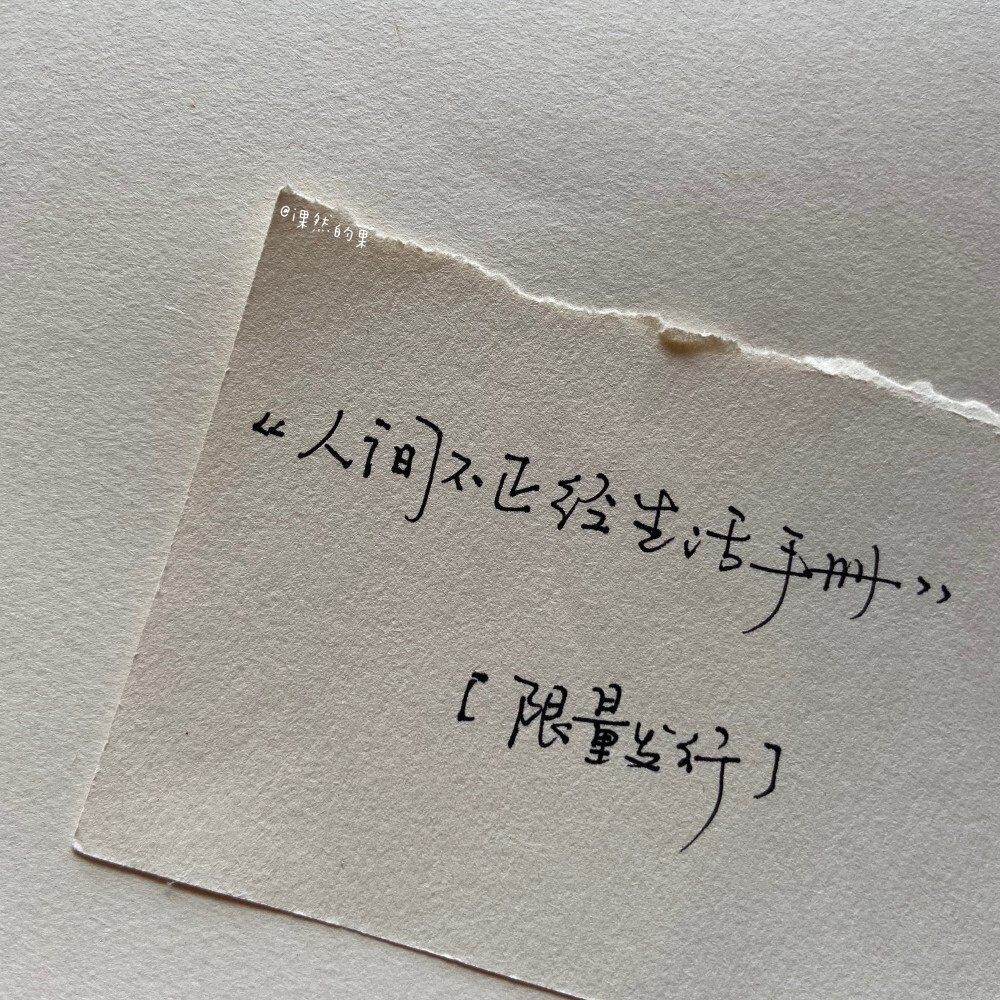 @淉然的果
《人间不正经生活手册》
[限量发行]